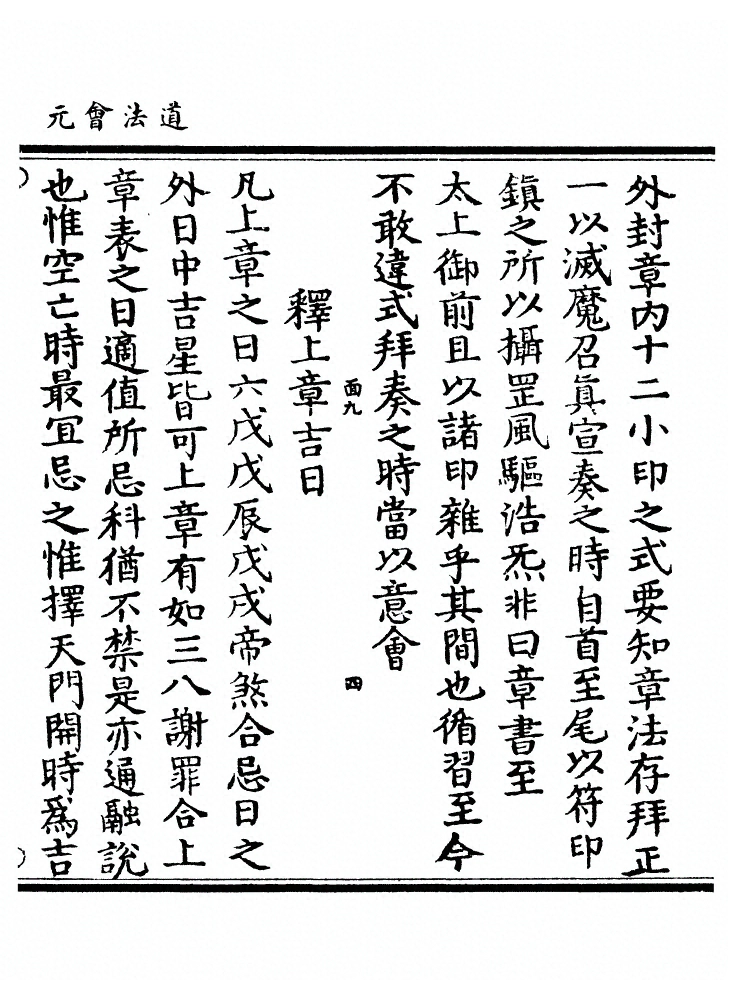 道法會元
外封章內十二小印之式要知章法存拜正
一以滅魔召眞宣奏之時自首至尾以符印
鎮之所以攝罡風驅浩炁非曰章書至
太上御前且以諸印雜乎其間也循習至今
不敢違式拜奏之時當以意會
面九
四
釋上章吉日
凡上章之日六戊戊辰戊戌帝煞合忌日之
外日中吉星皆可上章有如三八謝罪合上
章表之日適值所忌科猶不禁是亦通融說
也惟空亡時最宜忌之惟擇天門開時爲吉